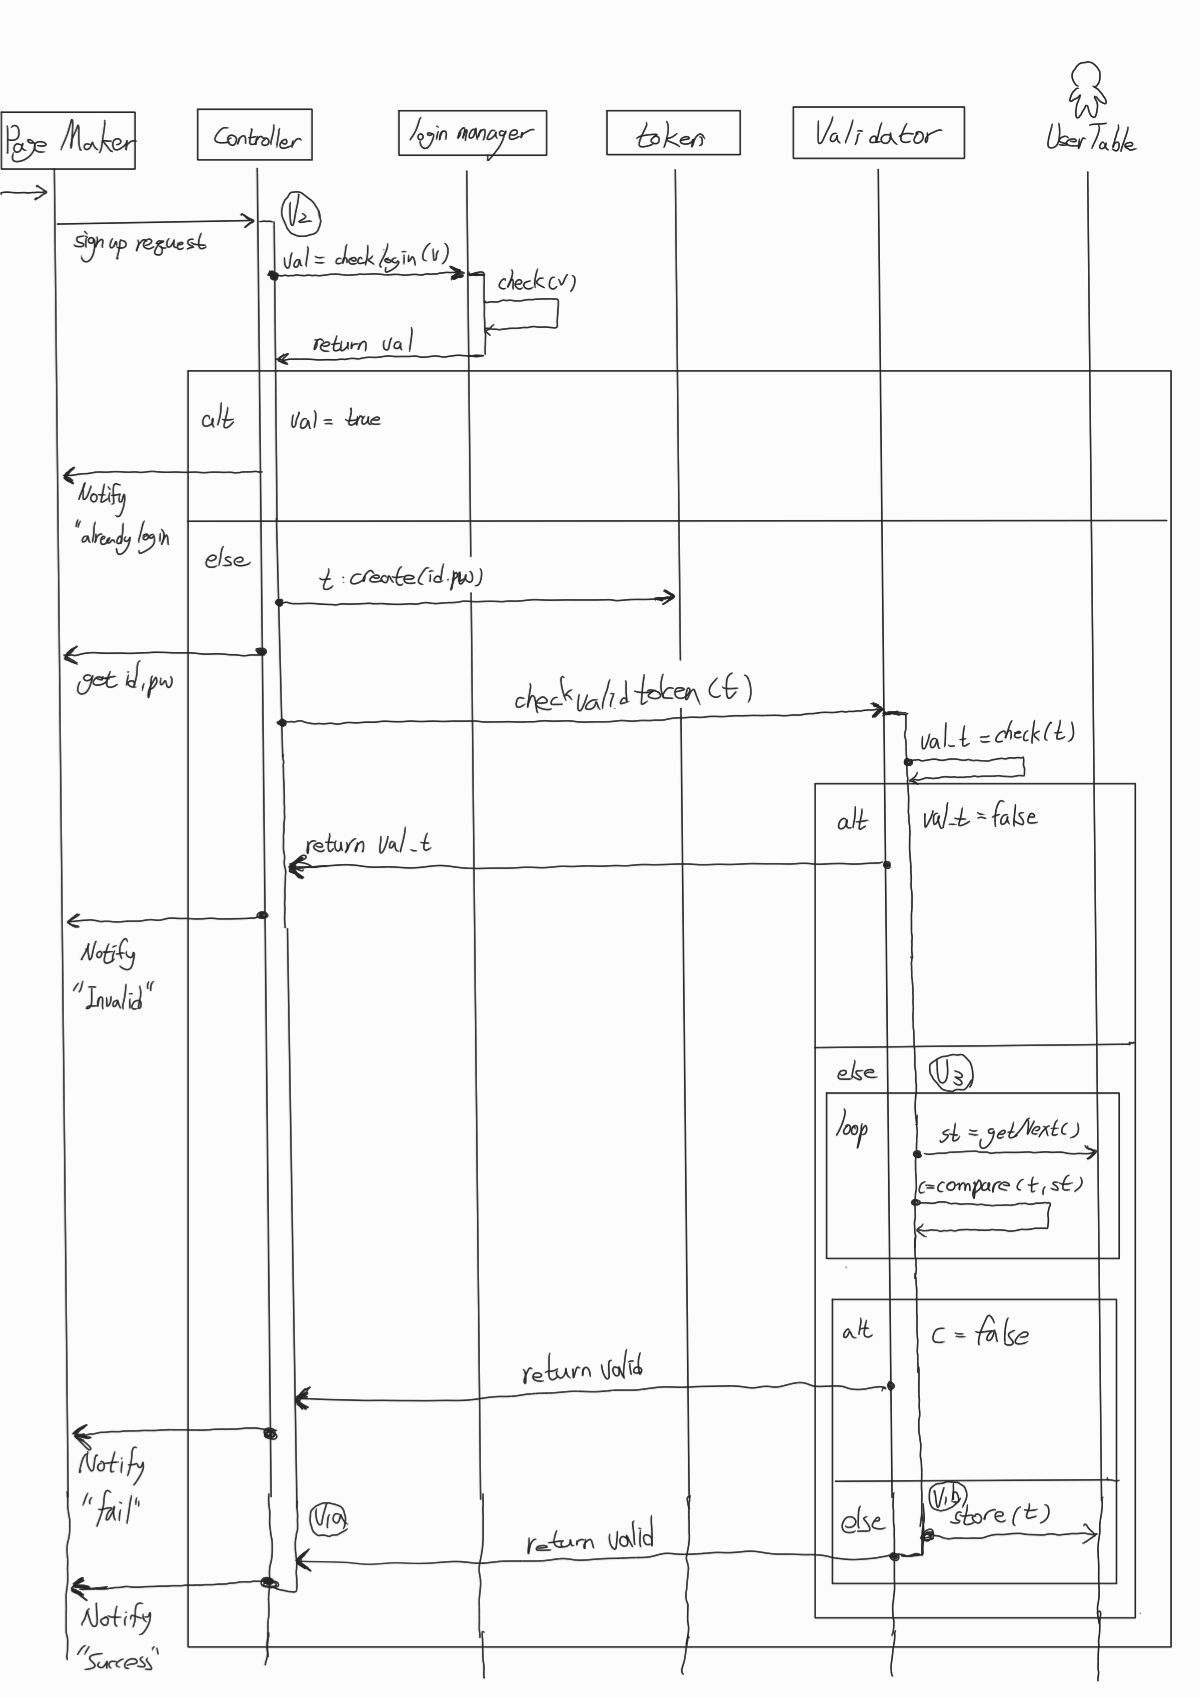 Page Maker
Controller
login manager
token
Validator
User Table
sign up request
V2
val = check login (v)
check(v)
return val
alt
val = true
Notify
"already login
else
t : create(id.pw)
get id, pw
check valid token (t)
val_t = check(t)
alt
val_t = false
return val_t
Notify
"Invalid"
else
V3
loop
st = getNext()
c=compare(t, st)
alt
c = false
return valid
Notify
"fail"
V1a
V1b
else
store(t)
return valid
Notify
"Success"